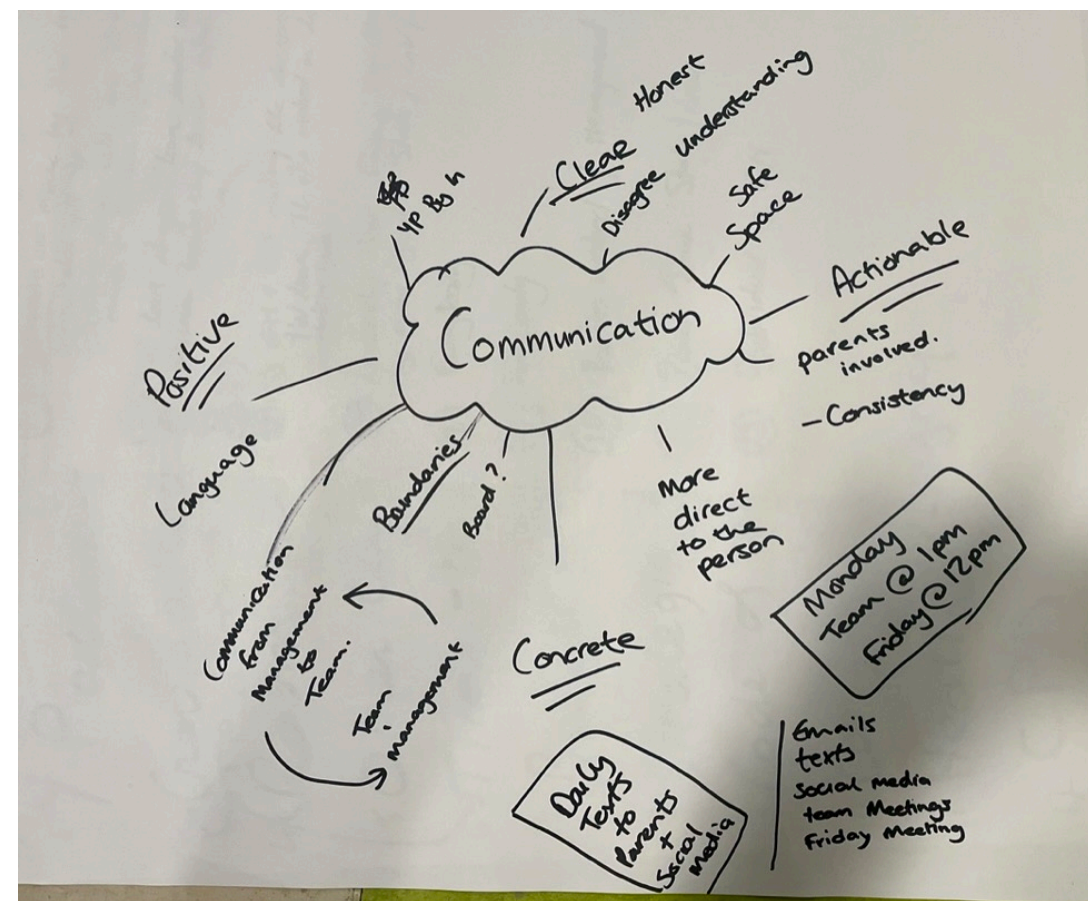 Communication
Clear
Honest
Disagree understanding
Safe
Space
Actionable
parents
involved.
- Consistency
More
direct
to the
person
Monday
Team @ 1pm
Friday @ 12pm
Emails
texts
Social media
team Meetings
Friday Meeting
Concrete
Daily
Texts
to
Parents
+
Social
Media
Board?
Boundaries
Communication
from
Management
to
Team.
Team
management
Positive
Language
YP By